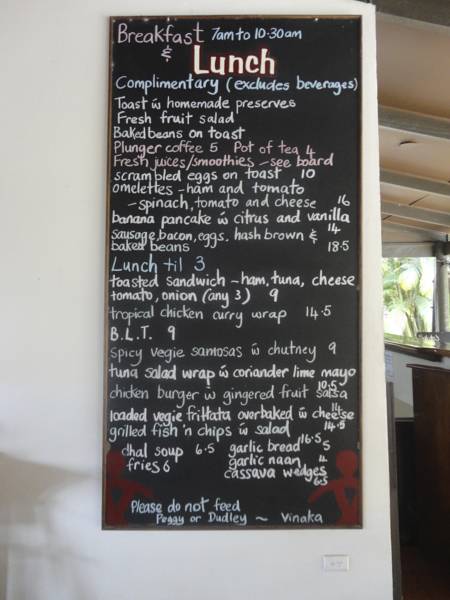 Breakfast 7am to 10.30am
& Lunch
Complimentary (excludes beverages)
Toast w homemade preserves
Fresh fruit salad
Baked beans on toast
Plunger coffee 5 Pot of tea 4
Fresh juices/smoothies - see board
scrambled eggs on toast 10
omelettes - ham and tomato
- spinach, tomato and cheese 16
banana pancake w citrus and vanilla
14
sausage, bacon, eggs. hash brown &
baked beans 18.5
Lunch til 3
toasted sandwich - ham, tuna, cheese
tomato, onion (any 3) 9
tropical chicken curry wrap 14.5
B.L.T. 9
spicy vegie samosas w chutney 9
tuna salad wrap w coriander lime mayo
10.5
chicken burger w gingered fruit salsa
14
loaded vegie frittata overbaked w cheese
14.5
grilled fish 'n chips w salad
16.5
dhal soup 6.5 garlic bread 5
fries 6 garlic naan 4
cassava wedges
6.5
Please do not feed
Peggy or Dudley ~ Vinaka